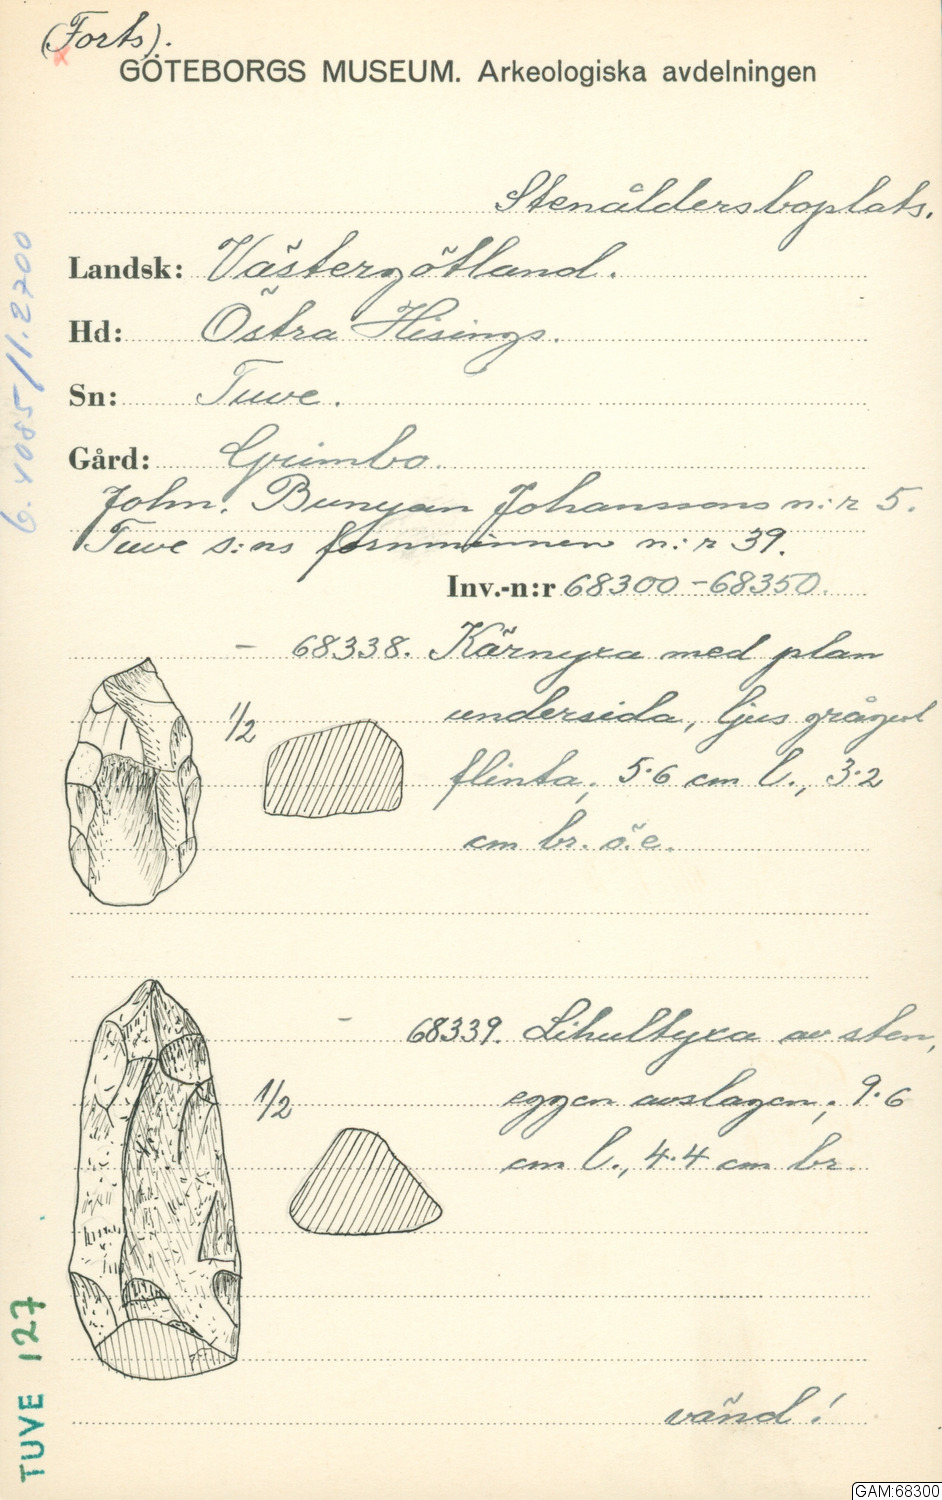 (Forts).
GÖTEBORGS MUSEUM. Arkeologiska avdelningen
Stenåldersboplats.
Landsk: Västergötland.
Hd: Östra Hisings.
Sn: Tuve.
Gård: Grimbo.
John. Bunyan Johanssons n:r 5.
Tuve s:ns fornminnen n:r 39.
Inv.-n:r 68300-68350.
- 68338. Kärnyxa med plan
1/2
undersida, ljus grågul
flinta; 5.6 cm l., 3.2
cm br. ö.e.
- 68339. Lihultyxa av sten,
1/2
eggen avslagen; 9.6
cm l., 4.4 cm br.
vänd!
TUVE 127
GAM:68300